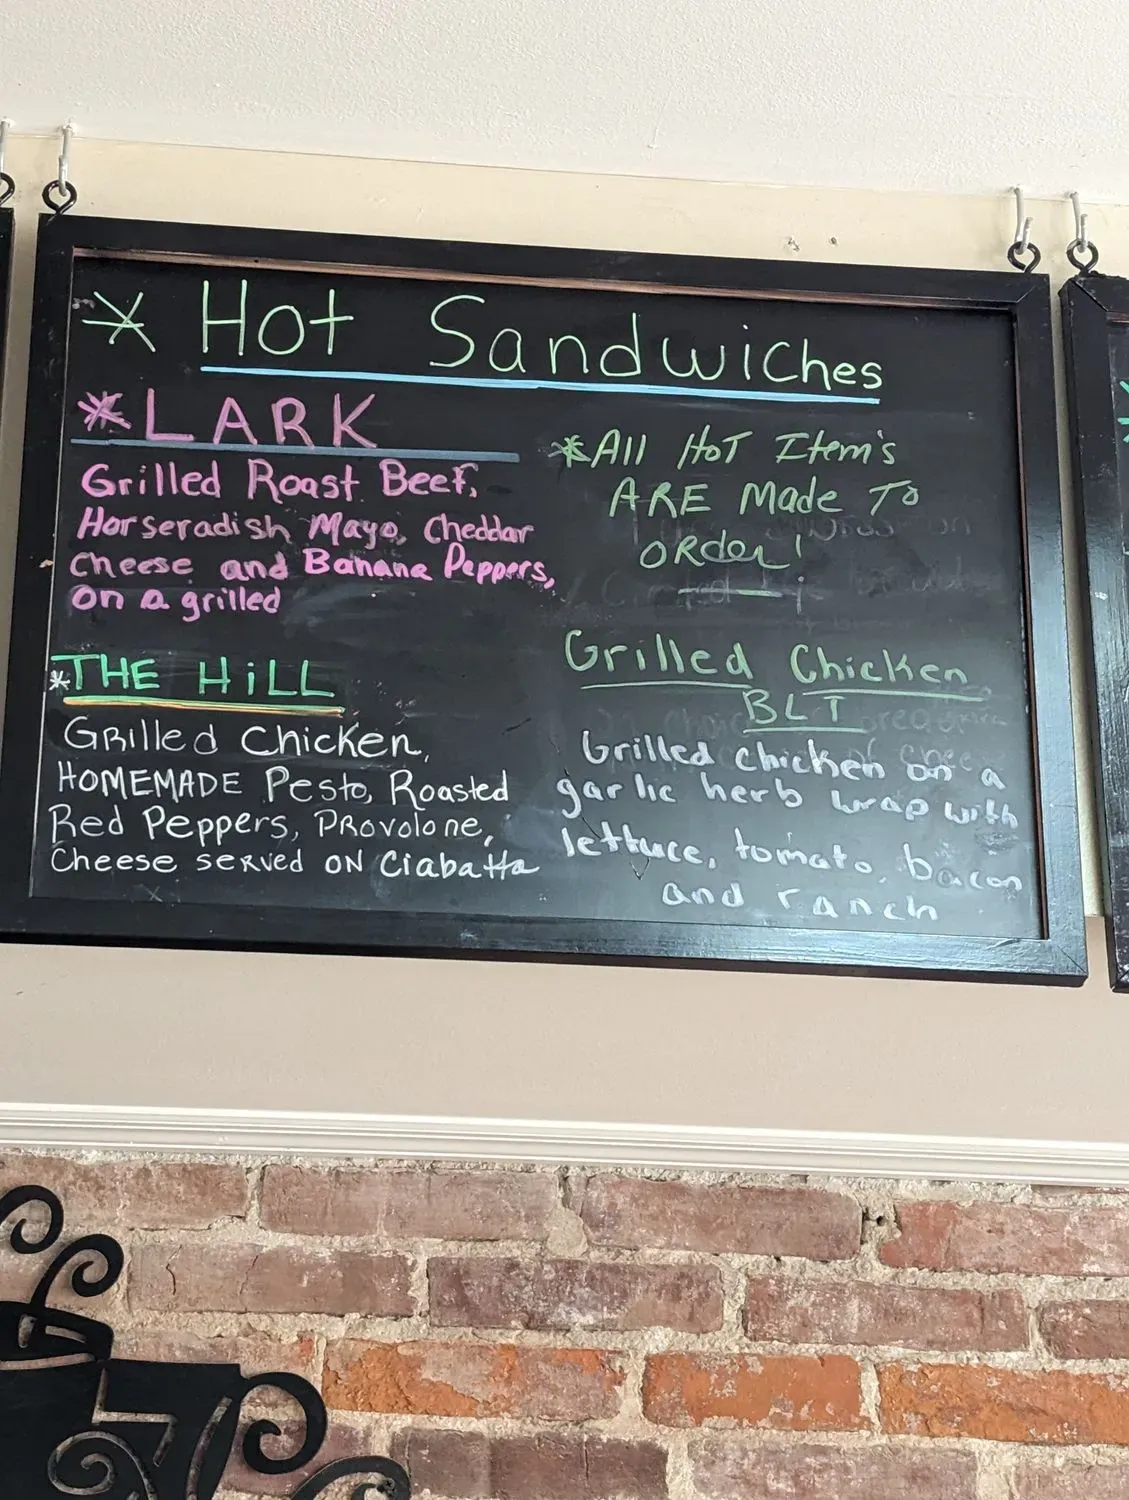 * Hot Sandwiches
* LARK
Grilled Roast Beef,
Horseradish Mayo, Cheddar
Cheese and Banana Peppers,
on a grilled
* THE HiLL
GRilled Chicken,
HOMEMADE Pesto, Roasted
Red Peppers, PRovolone,
Cheese seRved ON Ciabatta
* All HOT Item's
ARE Made To
ORder!
Grilled Chicken
BLT
Grilled chicken on a
garlic herb wrap with
lettuce, tomato, bacon
and ranch